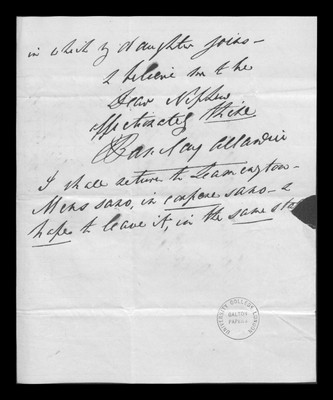 in which my daughter joins –
& believe me to be
Dear Nephew
affectionately thine
Barclay Allardice
I shall return to Leamington –
Mens sano, in corpore sano – &
hope to leave it, in the same
UNIVERSITY COLLEGE LONDON
GALTON
PAPERS